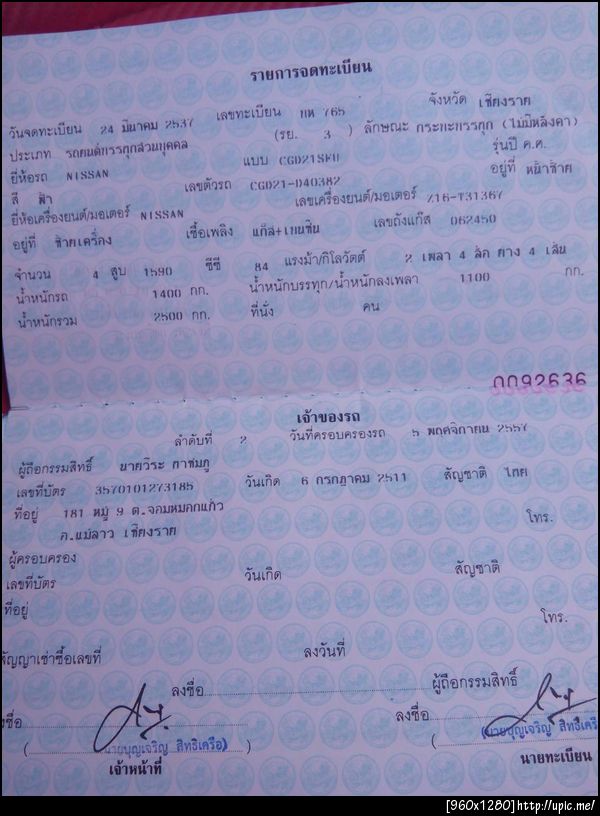 รายการจดทะเบียน
วันจดทะเบียน 24 มีนาคม 2537 เลขทะเบียน 765 จังหวัด เชียงราย
ประเภท รถยนต์บรรทุกส่วนบุคคล (รย. 3 ) ลักษณะ กระบะบรรทุก (ไม่มีหลังคา)
ยี่ห้อรถ NISSAN แบบ รุ่นปี ค.ศ.
สี ฟ้า เลขตัวรถ CGD21-D40382 อยู่ที่ หน้าซ้าย
ยี่ห้อเครื่องยนต์/มอเตอร์ NISSAN เลขเครื่องยนต์/มอเตอร์ Z16-T31367
อยู่ที่ ซ้ายเครื่อง เชื้อเพลิง แก๊ส+เบนซิน เลขถังแก๊ส 062450
จำนวน 4 สูบ 1590 ซีซี 84 แรงม้า/กิโลวัตต์ 2 เพลา 4 ล้อ ยาง 4 เส้น
น้ำหนักรถ 1400 กก. น้ำหนักบรรทุก/น้ำหนักลงเพลา 1100 กก.
น้ำหนักรวม 2500 กก. ที่นั่ง คน
0092636
เจ้าของรถ
ลำดับที่ 2 วันที่ครอบครองรถ 5 พฤศจิกายน 2557
ผู้ถือกรรมสิทธิ์ นายวิระ กาชมภู
เลขที่บัตร 3570101273185 วันเกิด 6 กรกฎาคม 2511 สัญชาติ ไทย
ที่อยู่ 181 หมู่ 9 ต.จอมหมอกแก้ว
อ.แม่ลาว เชียงราย โทร.
ผู้ครอบครอง
เลขที่บัตร วันเกิด สัญชาติ
ที่อยู่
โทร.
สัญญาเช่าซื้อเลขที่ ลงวันที่
ลงชื่อ ผู้ถือกรรมสิทธิ์
ลงชื่อ ลงชื่อ
(นายบุญเจริญ สิทธิเครือ) (นายบุญเจริญ สิทธิเครือ
เจ้าหน้าที่ นายทะเบียน
[960x1280]http://upic.me/